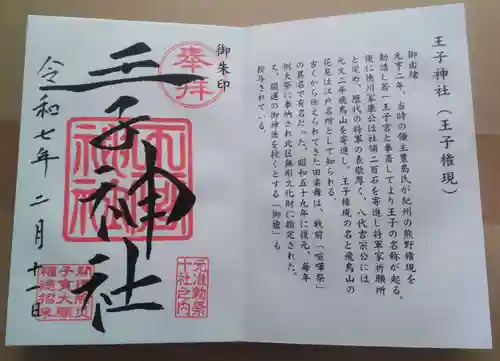 王子神社（王子権現）
御由緒
元亨二年、当時の領主豊島氏が紀州の熊野権現を
勧請し若一王子宮と奉斎してより王子の名称が起る。
後に徳川家康公は社領二百石を寄進し将軍家祈願所
と定め、歴代の将軍の表敬厚く、八代吉宗公には
元文二年飛鳥山を寄進し、王子権現の名と飛鳥山の
花見は江戸名所として知られる。
古くから伝えられてきた田楽舞は、戦前「喧嘩祭」
の異名で有名だった。昭和五十九年に復元、毎年
例大祭に奉納され北区無形文化財に指定された。
又、開運の御神法を授くとする「御槍」も
授与されている。
御朱印
奉拝
王子神社
令和七年二月十一日
元准勅祭
十社之内
開運
子育大願